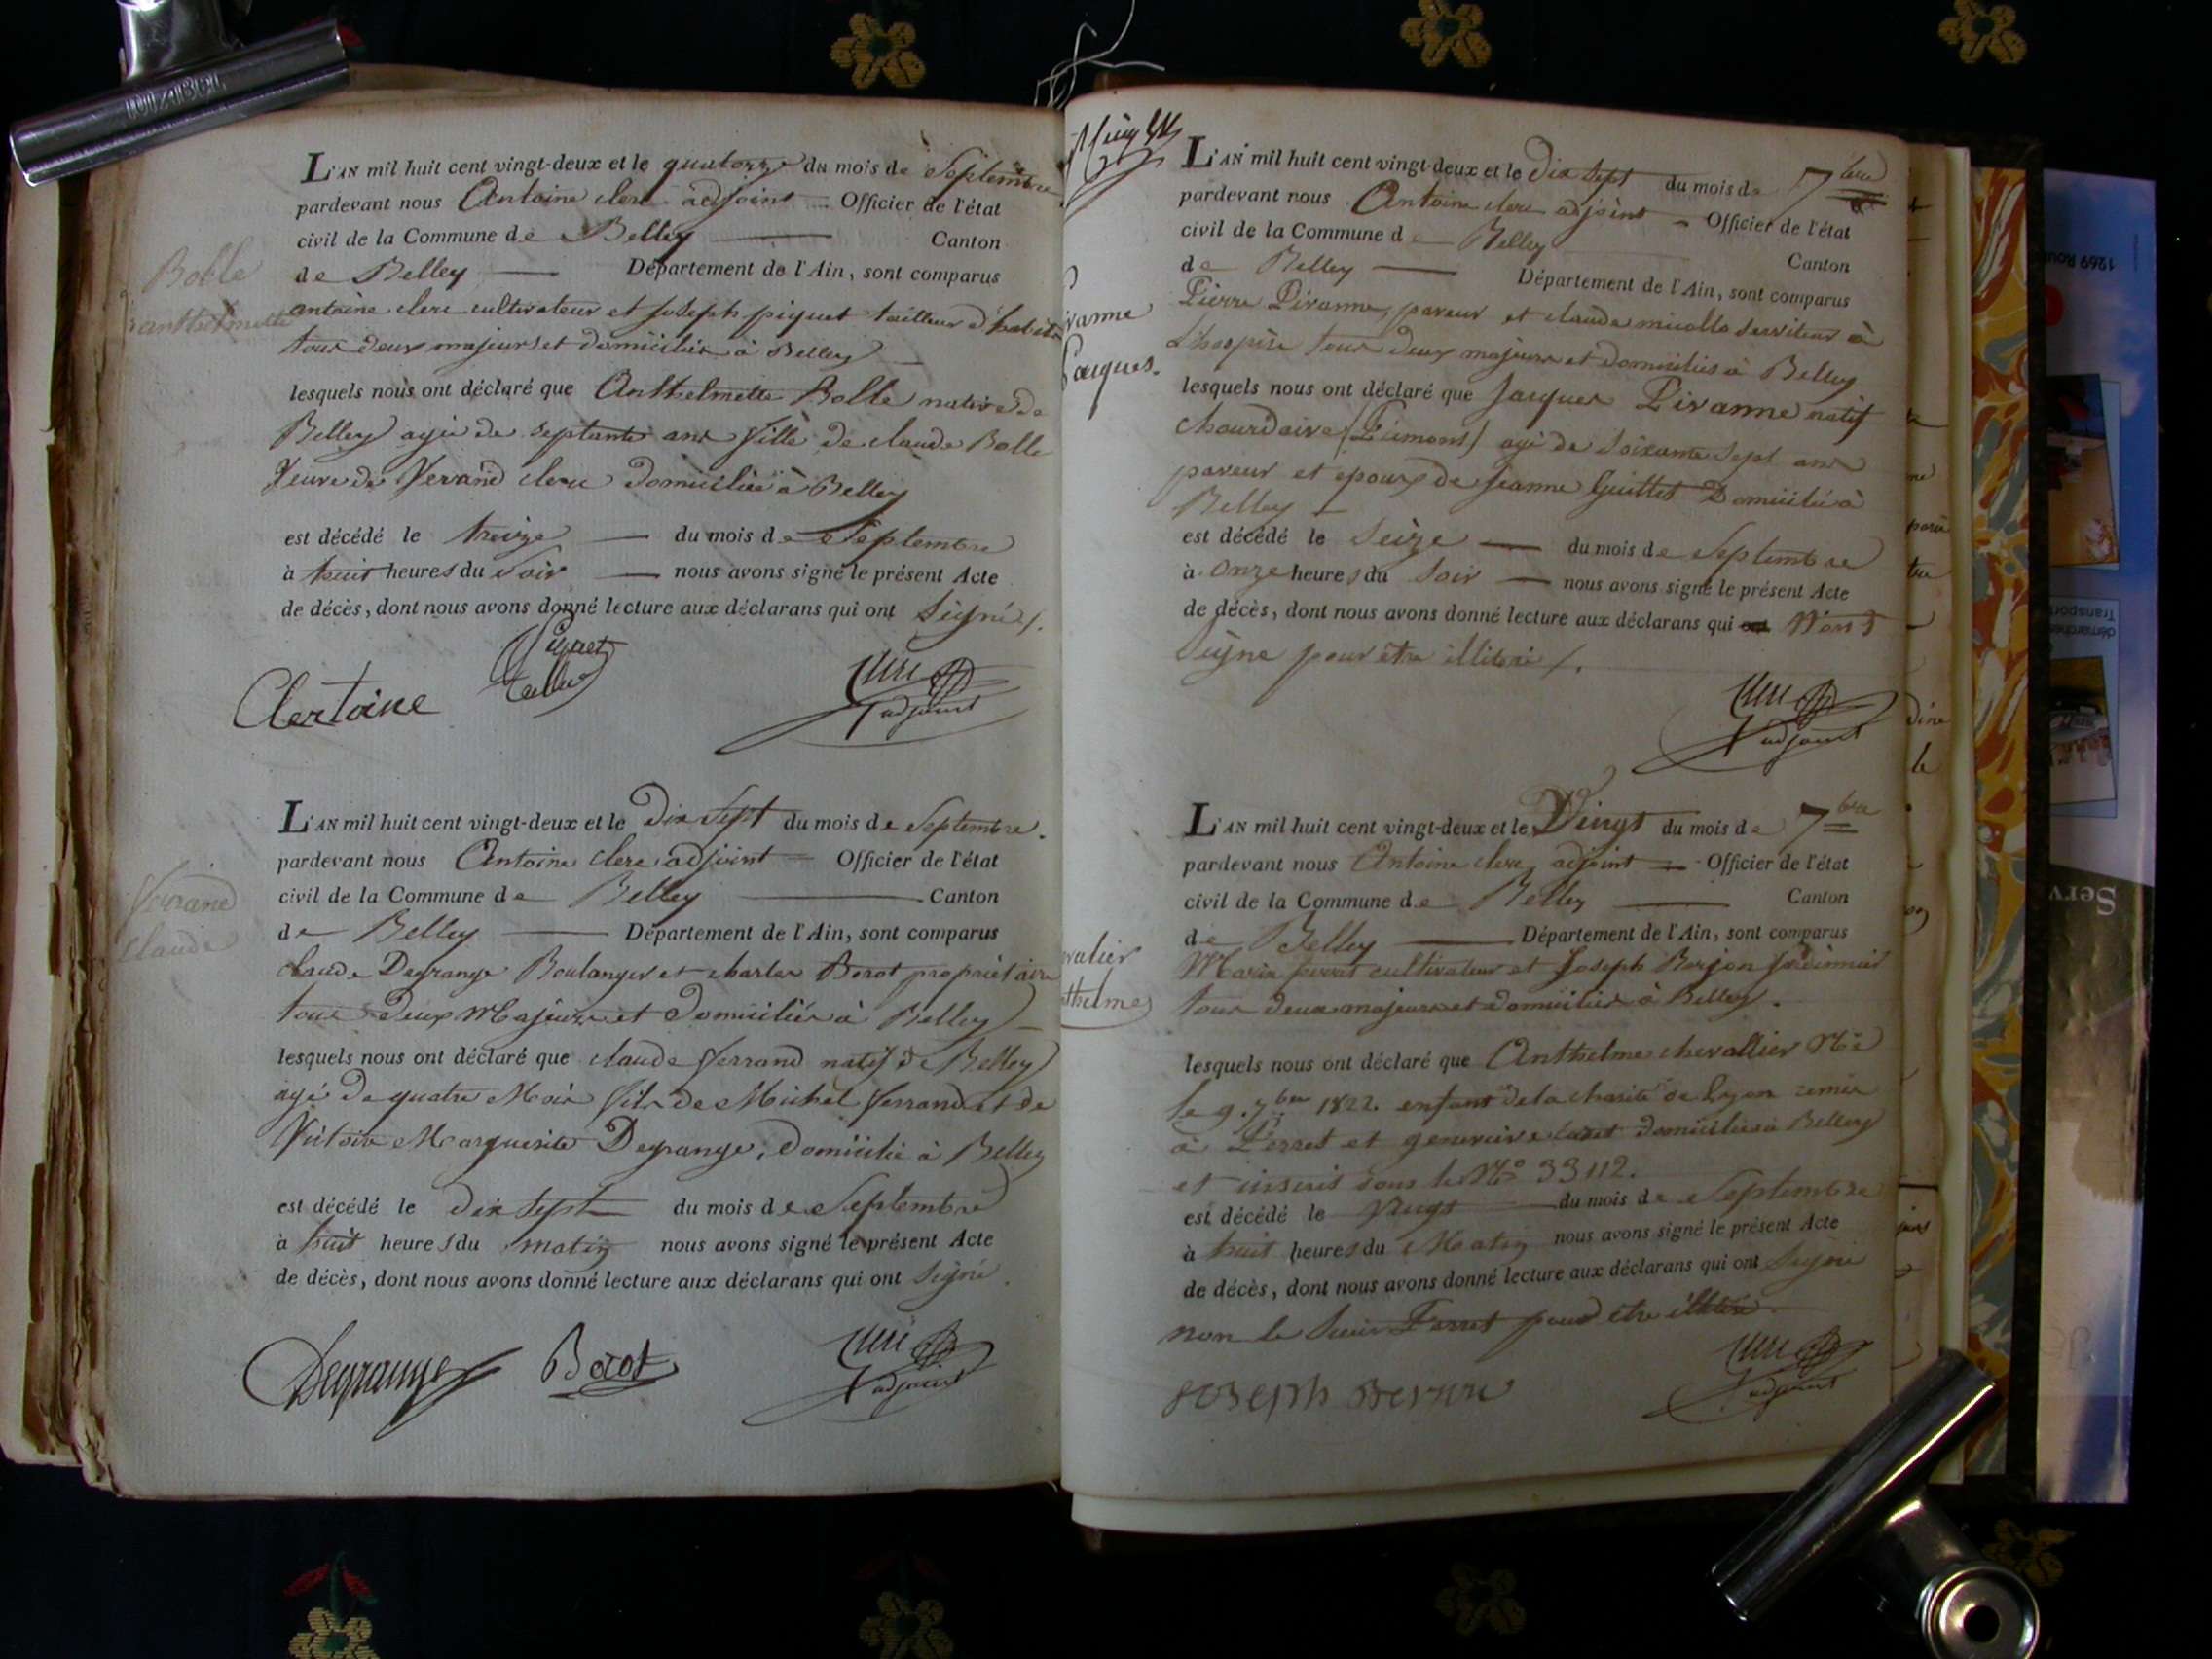 L'AN mil huit cent vingt-deux et le quatorze du mois de Septembre
pardevant nous Antoine clerc adjoint Officier de l'état
civil de la Commune de Belley Canton
de Belley Département de l'Ain, sont comparus
Bolle
anthelmette
antoine clerc cultivateur et Joseph piquet tailleur d'habits
tous deux majeurs et domiciliés à Belley
lesquels nous ont déclaré que Anthelmette Bolle native de
Belley agée de septante ans fille de claude Bolle
Veuve de Ferrand clerc domiciliée à Belley
est décédé le treize du mois de Septembre
à huit heures du soir nous avons signé le présent Acte
de décès, dont nous avons donné lecture aux déclarans qui ont signé /.
Clertoine
adjoint
L'AN mil huit cent vingt-deux et le Dix sept du mois de Septembre.
pardevant nous Antoine clerc adjoint Officier de l'état
civil de la Commune de Belley Canton
de Belley Département de l'Ain, sont comparus
ferrand
claude
claude Degrange Boulanger et charles Borot propriétaire
tous deux Majeurs et domiciliés à Belley
lesquels nous ont déclaré que claude ferrand natif de Belley
agé de quatre Mois fils de Michel ferrand et de
Victoire Marguerite Degrange, domicilié à Belley
est décédé le dix sept du mois de Septembre
à huit heures du matin nous avons signé le présent Acte
de décès, dont nous avons donné lecture aux déclarans qui ont signé.
Degrange Borot
adjoint
L'AN mil huit cent vingt-deux et le Dix sept du mois de 7bre
pardevant nous Antoine clerc adjoint Officier de l'état
civil de la Commune de Belley Canton
de Belley Département de l'Ain, sont comparus
vanne
Jacques.
Pierre Pivanne, paveur et claude micollo serviteur à
L'hospice tous deux majeurs et domiciliés à Belley
lesquels nous ont déclaré que Jacques Pivanne natif
(Piémont) agé de soixante sept ans
paveur et epoux de Jeanne Guittet Domicilié à
Belley
est décédé le Seize du mois de Septembre
à onze heures du soir nous avons signé le présent Acte
de décès, dont nous avons donné lecture aux déclarans qui ont N'ont
signé pour être illitéré /.
adjoint
L'AN mil huit cent vingt-deux et le Vingt du mois de 7bre
pardevant nous Antoine clerc adjoint Officier de l'état
civil de la Commune de Belley Canton
de Belley Département de l'Ain, sont comparus
valier
thelme
cultivateur et Joseph Berjon Jardinnier
tous deux majeurs et domiciliés à Belley.
lesquels nous ont déclaré que Anthelme chevallier Né
le 9. 7bre 1822. enfant de la charité de Lyon remis
à Perret et genevieve domiciliés à Belley
et inscrit sous le No 33112.
est décédé le Vingt du mois de Septembre
à huit heures du Matin nous avons signé le présent Acte
de décès, dont nous avons donné lecture aux déclarans qui ont signé
non le Sieur pour être illitéré.
Joseph
adjoint